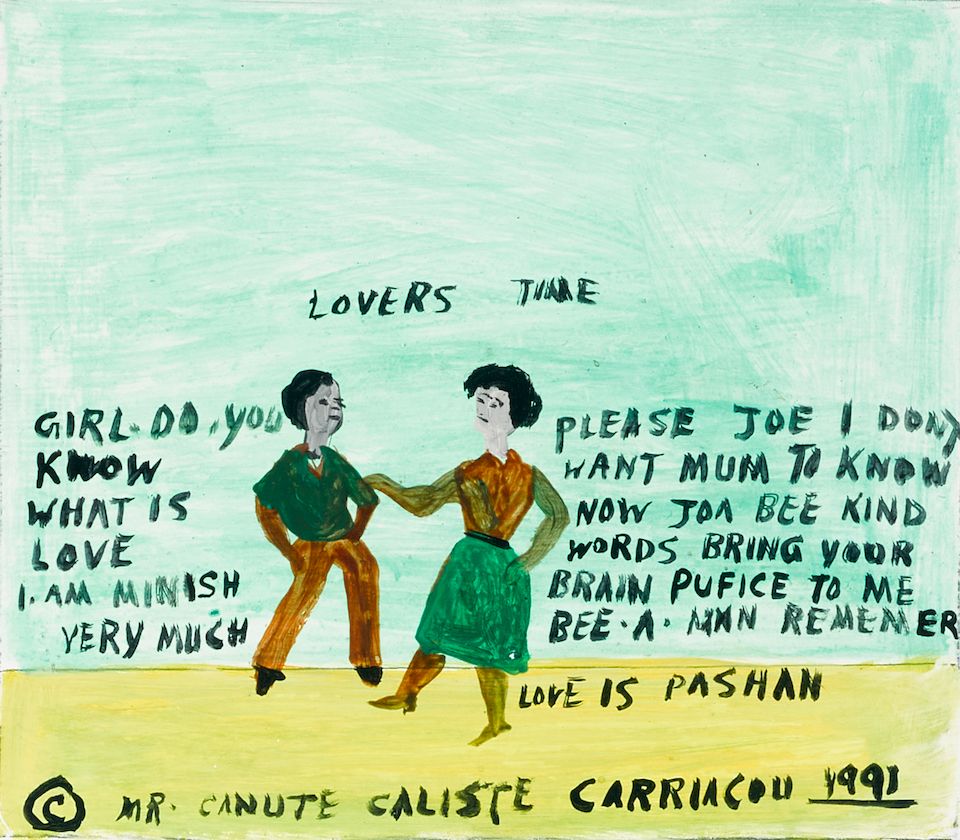 LOVERS TIME
GIRL. DO. YOU
KNOW
WHAT IS
LOVE
I. AM MINISH
VERY MUCH
PLEASE JOE I DONT
WANT MUM TO KNOW
NOW JOA BEE KIND
WORDS BRING YOUR
BRAIN PUFICE TO ME
BEE. A. MAN REMEMER
LOVE IS PASHAN
© MR. CANUTE CALISTE CARRIACOU 1991